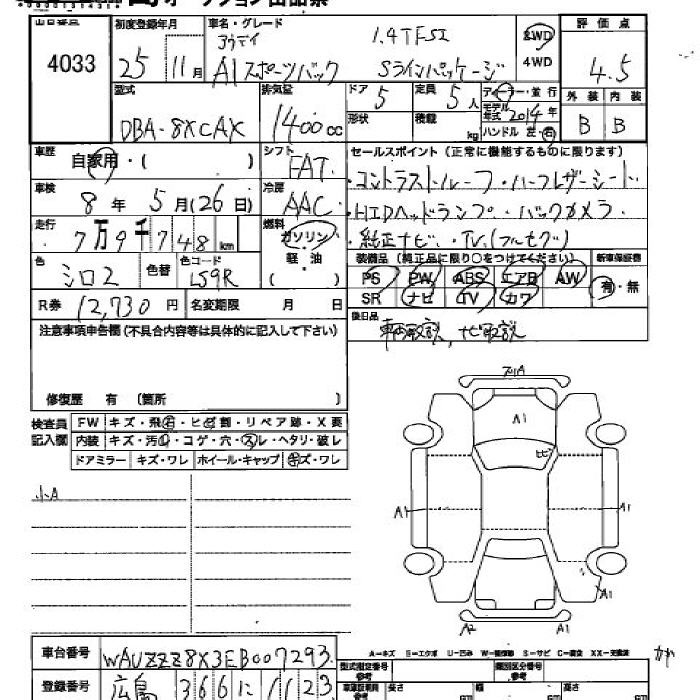 出品番号 初度登録年月 車名・グレード 評価点
4033 25 11月 アウディ 1.4TFSI 2WD 4WD 4.5
A1スポーツバック Sラインパッケージ
型式 排気量 ドア 定員 ディーラー・並行 外装 内装
DBA-8XCAX 1400cc 5 5人 モデル年式 2014年 B B
形状 積載 kg ハンドル 左・右
車歴 自家用・( ) シフト FAT セールスポイント(正常に機能するものに限ります)
車検 8年5月(26日) 冷房 AAC ・コントラストルーフ・ハーフレザーシート
・HIDヘッドランプ・バックカメラ
走行 7万9千748km 燃料 ガソリン ・純正ナビ・TV(フルセグ)
軽・油 ( )
装備品(純正品に限り○をつけてください) 新車保証書
色 シロ2 色替 色コード LS9R PS PW ABS エアB AW 有・無
SR ナビ TV カワ
R券 12,730円 名変期限 月 日 後日品
車両取説、ナビ取説
注意事項申告欄(不具合内容等は具体的に記入して下さい)
修復歴 有 (箇所
検査員記入欄 FW キズ・飛石・ヒビ割・リペア跡・X要
内装 キズ・汚レ・コゲ・穴・スレ・ヘタリ・破レ
ドアミラー キズ・ワレ ホイール・キャップ キズ・ワレ
小A
A1
ヒビ
A1 A1
A1
A2
車台番号 WAUZZZ8X3EB007293
A-キズ E-エクボ U-凹み S-サビ C-腐食 XX-交換済
登録番号 広島 366 に 1123
型式指定番号 参考 類別区分番号 参考
長さ 幅 高さ